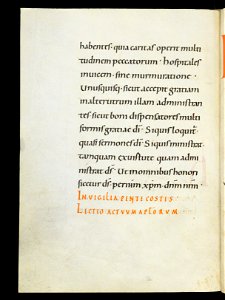 habentes · quia caritas operit multi
tudinem peccatorum · hospitales
inuicem · sine murmuratione ·
Unusquisq; sicut accepit gratiam
in alterutrum illam administran
tes · sicut boni dispensatores multi
formis gratiae dī · Siquis loquit͛
quasi sermones dī · Siquis ministrat
tamquam ex uirtute quam admi
nistrat dś · Ut in omnibus honori
ficetur dś per iħm xp̄m dn̄m nr̄m ·
IN UIGILIA PENTECOSTES ·
LECTIO ACTUUM APLORUM ·